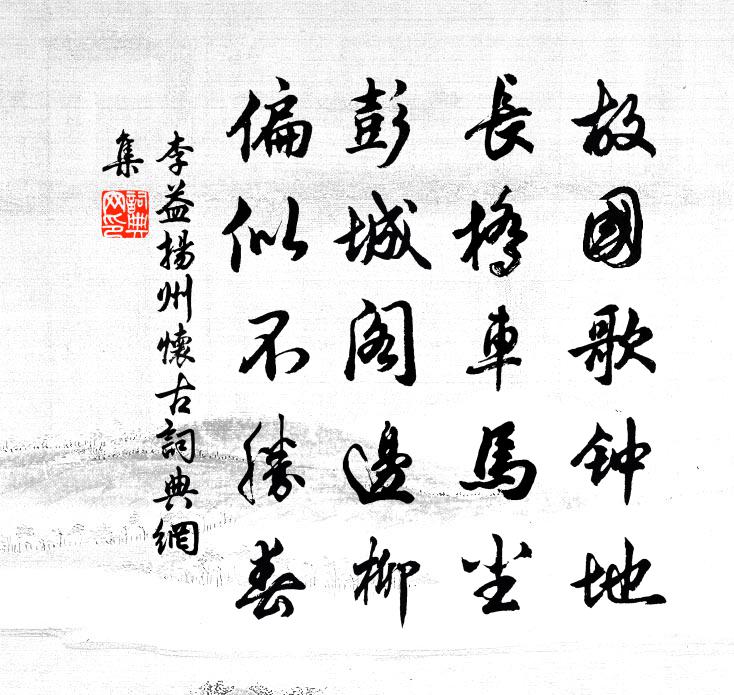 故國歌钟地
長橋車馬尘
彭城阁邊柳
偏似不勝春
李益揚州懷古詞典網
集
詞典
网印